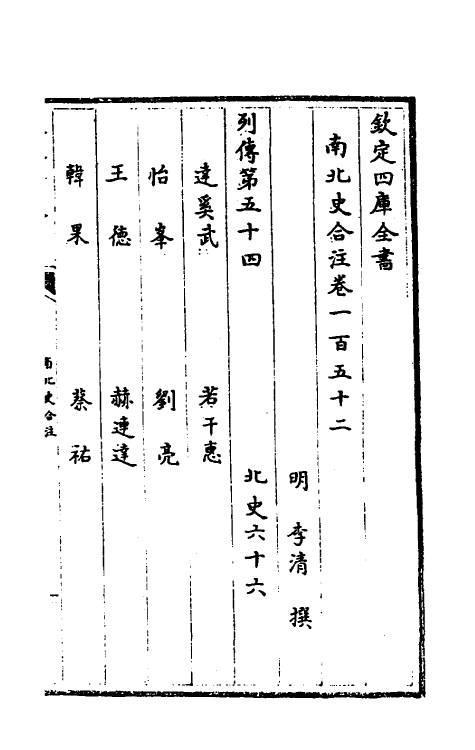 欽定四庫全書
南北史合注卷一百五十二
明 李清 撰
列傳第五十四 北史六十六
達奚武 若干惠
怡峯 劉亮
王德 赫連達
韓果 蔡祐
南北史合注
一